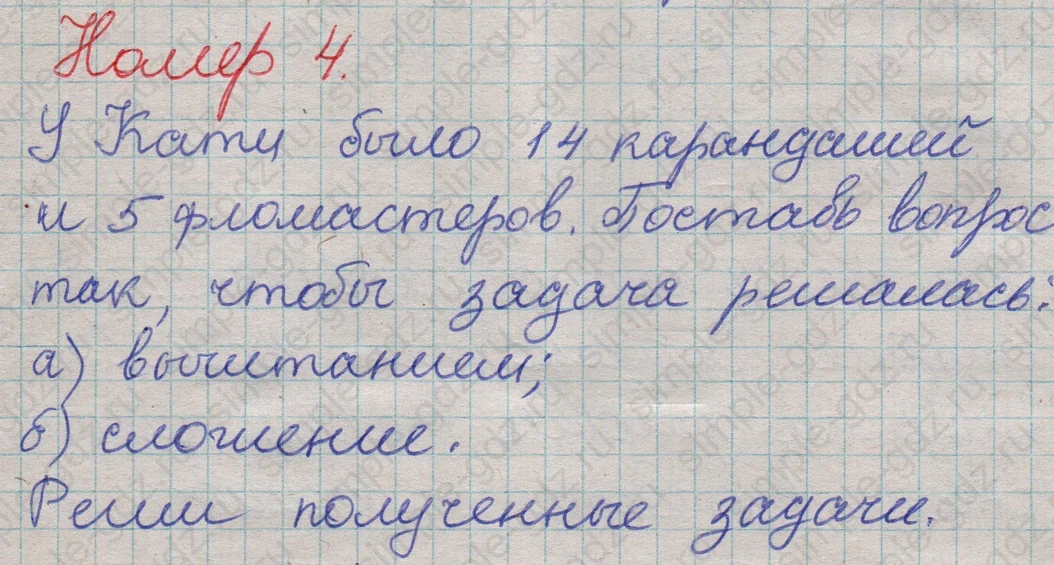 Номер 4.
У Кати было 14 карандашей
и 5 фломастеров. Поставь вопрос
так, чтобы задача решалась:
а) вычитанием;
б) сложение.
Реши полученные задачи.